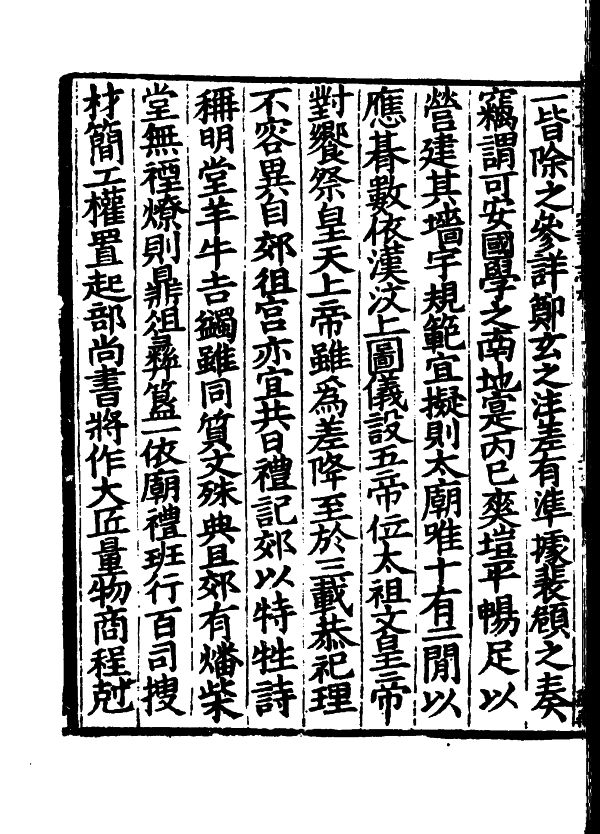 一皆除之參詳鄭玄之注差有準據裴頠之奏
竊謂可安國學之南地寔丙巳爽塏平暢足以
營建其墻宇規範宜擬則太廟唯十有二閒以
應朞數依漢汶上圖儀設五帝位太祖文皇帝
對饗祭皇天上帝雖爲差降至於三載恭祀理
不容異自郊徂宮亦宜共日禮記郊以特牲詩
稱明堂羊牛吉蠲雖同質文殊典且郊有燔柴
堂無禋燎則鼎俎彝簋一依廟禮班行百司搜
材簡工權置起部尚書將作大匠量物商程尅